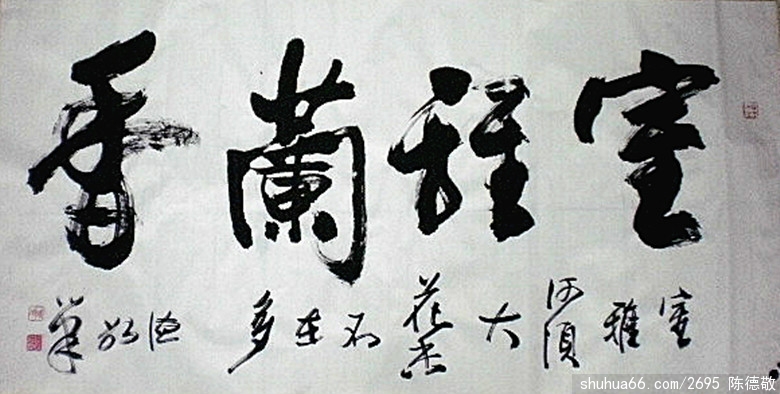 室雅蘭香
室雅何須大花香不在多
德敬筆
shuhua66.com/2695 陈德敬